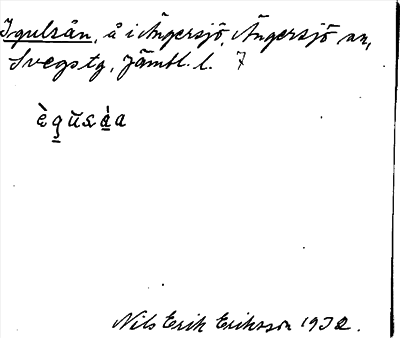 Igulsån, å i Ängersjö, Ängersjö sn,
Svegs tg, Jämtl. l. 7
Nils Erik Eriksson 1932.